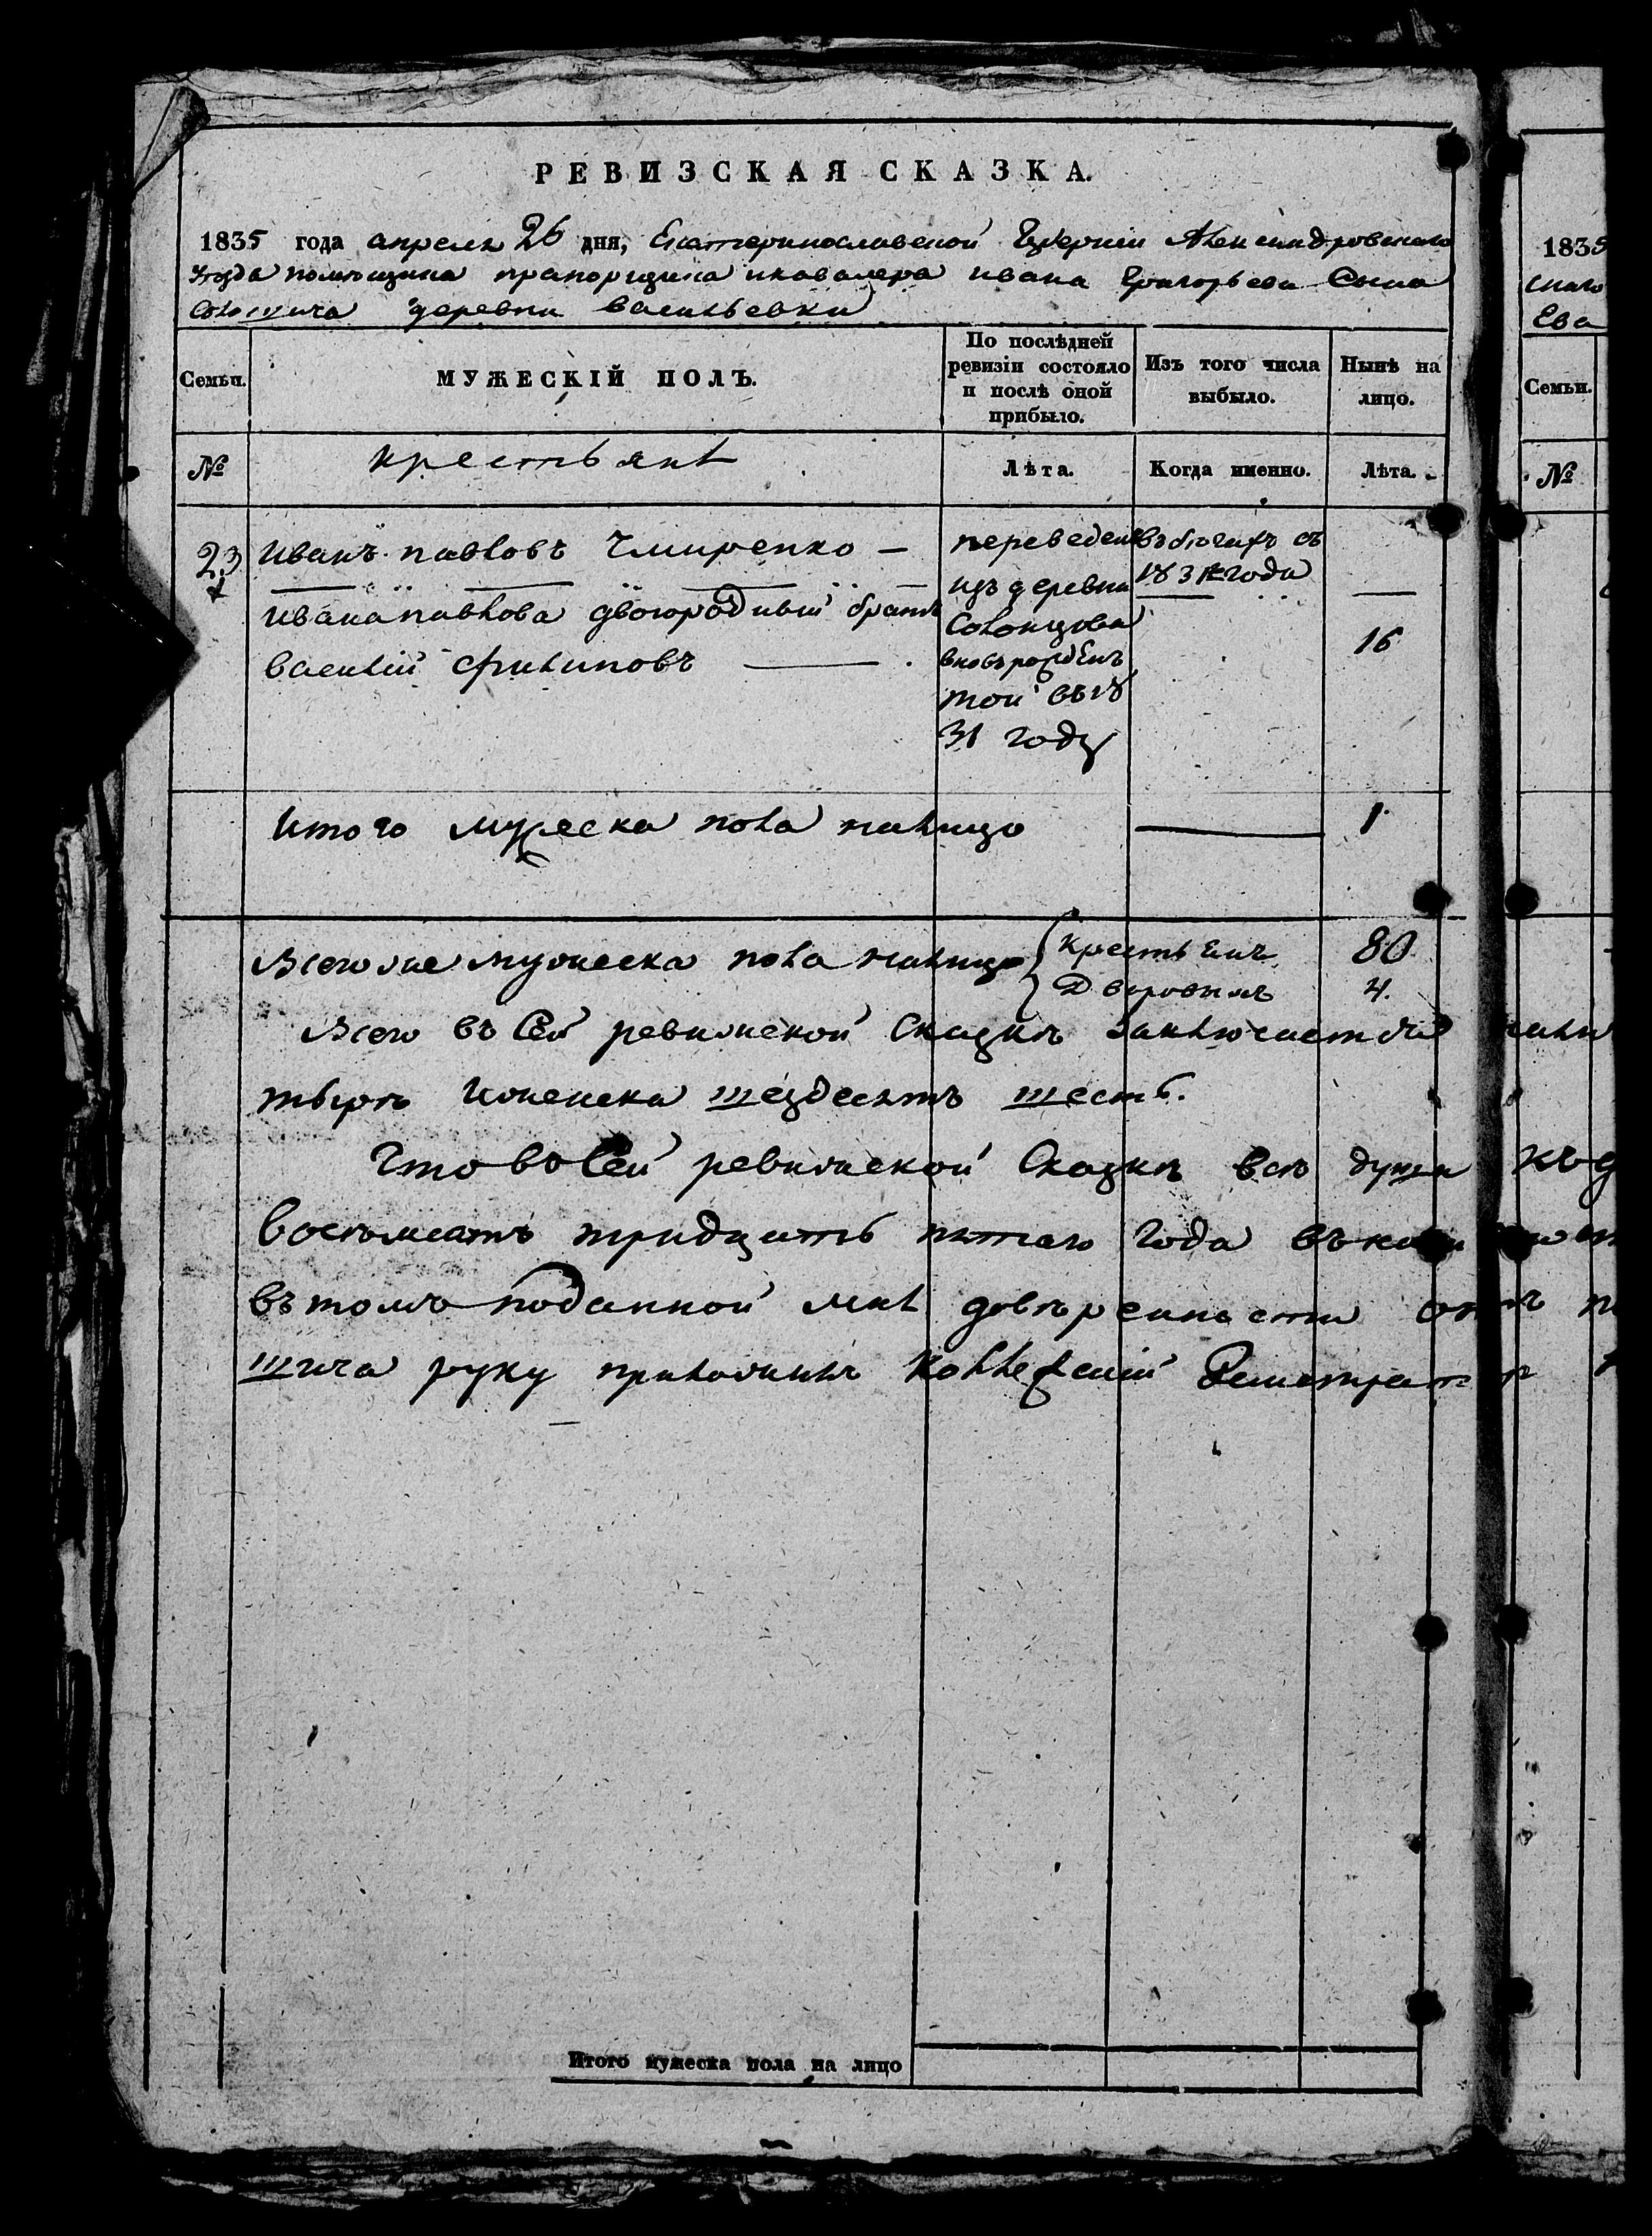 РЕВИЗСКАЯ СКАЗКА.
1835 года апреля 26 дня, Екатеринославской Губернии Александровскаго
Уезда помещика прапорщика и кавалера Ивана Григорьева Сына
деревни Васильевки
Семьи.
МУЖЕСКІЙ ПОЛЪ.
По послѣдней ревизіи состояло и послѣ оной прибыло.
Изъ того числа выбыло.
Нынѣ на лицо.
№
крестьянѣ
Лѣта.
Когда именно.
Лѣта.
23 Иванъ павловъ Чмиренко — переведенъ въ бегахъ съ
изъ деревни 183 года —
Ивана павлова двоюродный братъ
Василій Филиповъ — 16
той въ 18
31 году
Итого мужеска пола налицо — 1
Всего же мужеска пола налицо { крестьянъ 80
Дворовыхъ 4.
Всего въ Сей ревижской Скаскѣ заключается
тыри Иженска шездесятъ шесть.
Что въ Сей ревижской Скаскѣ всѣ души къ
восемьсотъ тридцать пятаго года
въ томъ поданной мнѣ довѣренности отъ
шича руку приложилъ Коллежскій Регистраторъ
Итого мужеска пола на лицо
1835
Ева
Семьи.
№